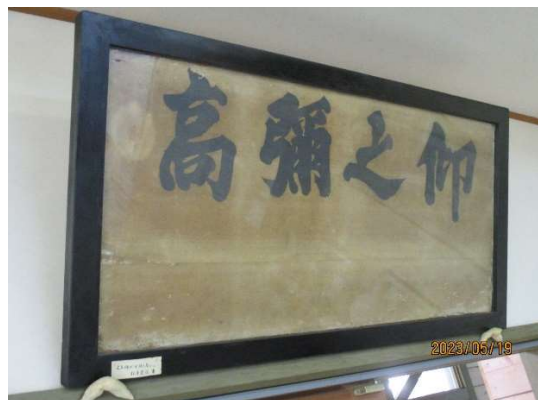 高彌之仰
2023/05/19